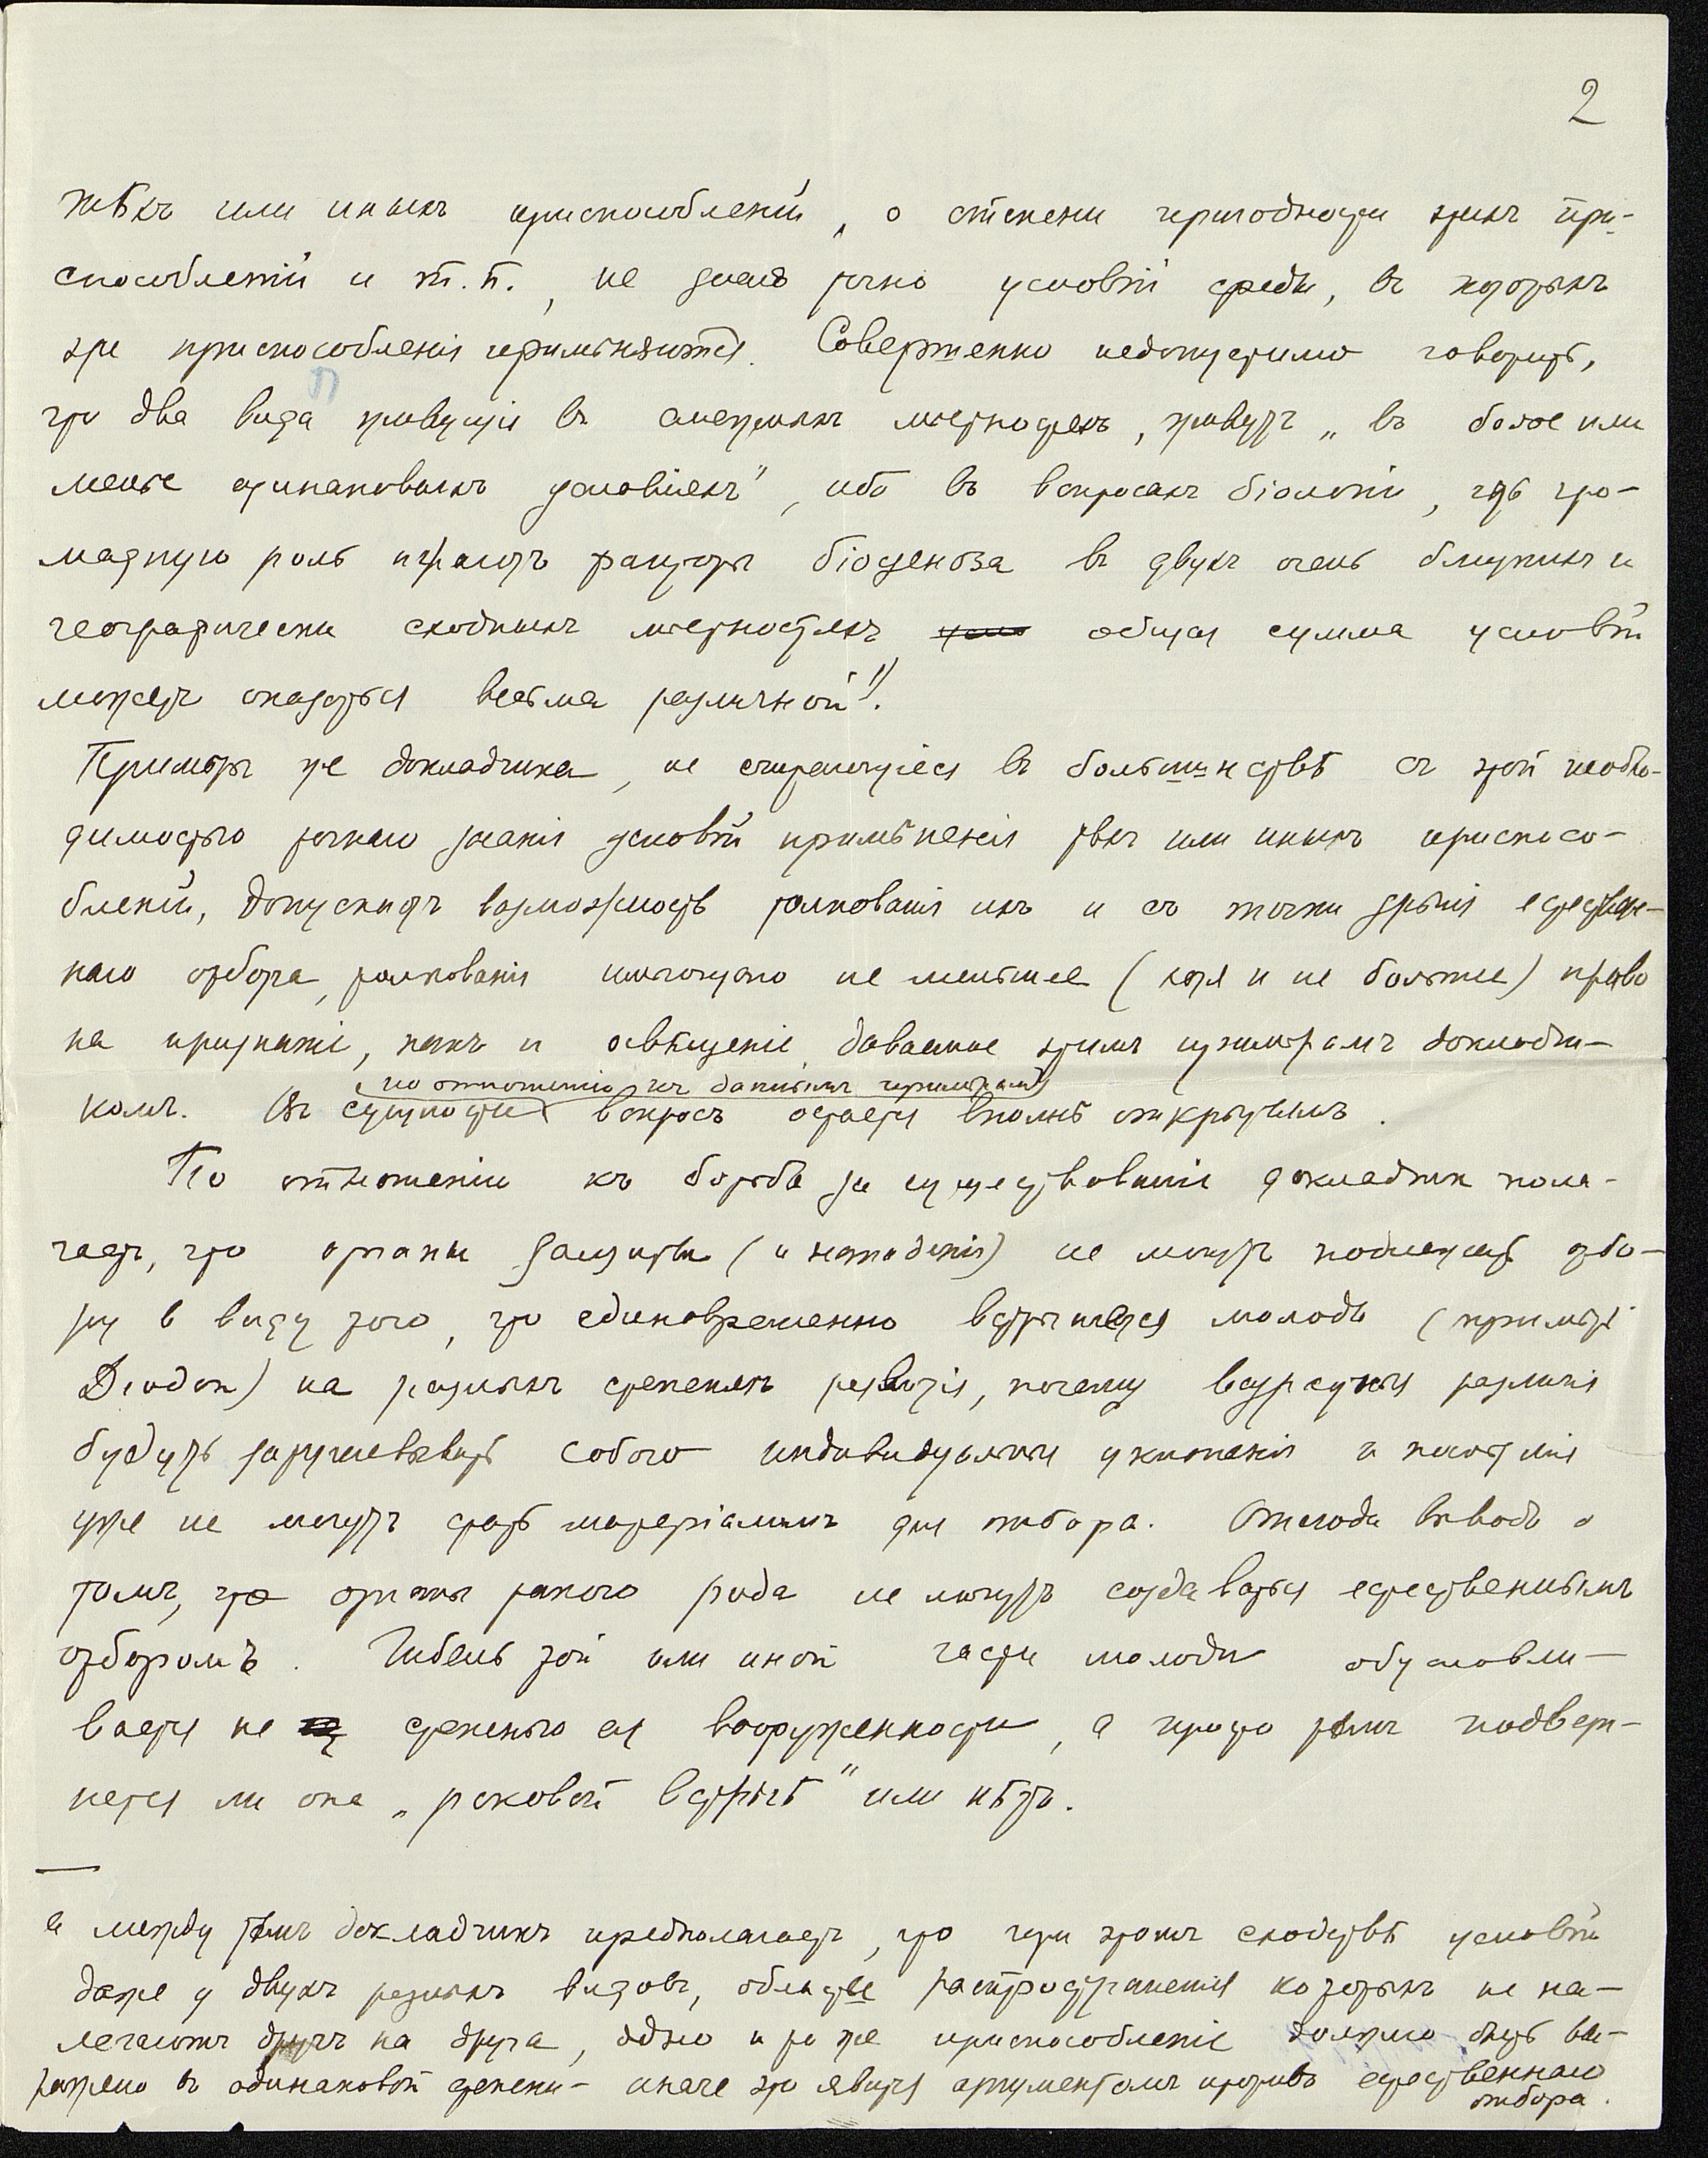 2
тѣхъ или иныхъ приспособленій, о степени пригодности этихъ при-
способленій и т.п., не зная точно условій среды, въ которыхъ
эти приспособленія примѣняются. Совершенно недопустимо говорить,
что два вида живущіе въ смежныхъ мѣстностяхъ, живутъ „въ болѣе или
менѣе одинаковыхъ условіяхъ", ибо въ вопросахъ біологіи, гдѣ гро-
мадную роль играютъ факторы біоценоза въ двухъ очень близкихъ и
географически сходныхъ мѣстностяхъ общая сумма условій
можетъ оказаться весьма различной ¹).
Примѣры же докладчика, не считающіеся въ большинствѣ съ этой необхо-
димостью точнаго знанія условій примѣненія тѣхъ или иныхъ приспосо-
бленій, допускаютъ возможность толкованія ихъ и съ точки зрѣнія естествен-
наго отбора, толкованія имѣющаго не меньшее (хотя и не большее) право
на признаніе, какъ и освѣщеніе даваемое этимъ примѣрамъ докладчи-
по отношенію къ даннымъ примѣрамъ
комъ. Въ сущности вопросъ остается вполнѣ открытымъ.
По отношенію къ борьбѣ за существованіе докладчик пола-
гаетъ, что органы защиты (и нападенія) не могутъ подлежать отбо-
ру в виду того, что единовременно встрѣчается молодь (примѣръ
Diodon) на разныхъ степеняхъ развитія, почему возрастныя различія
будутъ затушевывать собою индивидуальныя уклоненія и послѣднія
уже не могутъ стать матеріаломъ для отбора. Отсюда выводъ о
томъ, что органы такого рода не могутъ создаваться естественнымъ
отборомъ. Гибель той или иной части молоди обусловли-
вается не степенью ея вооруженности, а просто тѣмъ подверг-
нется ли она „роковой встрѣчѣ" или нѣтъ.
¹) между тѣмъ докладчикъ предполагаетъ, что при этомъ сходствѣ условій
даже у двухъ разныхъ видовъ, области распространенія которыхъ не на-
легаютъ другъ на друга, одно и то же приспособленіе должно быть вы-
ражено въ одинаковой степени - иначе это явится аргументомъ противъ естественнаго
отбора.